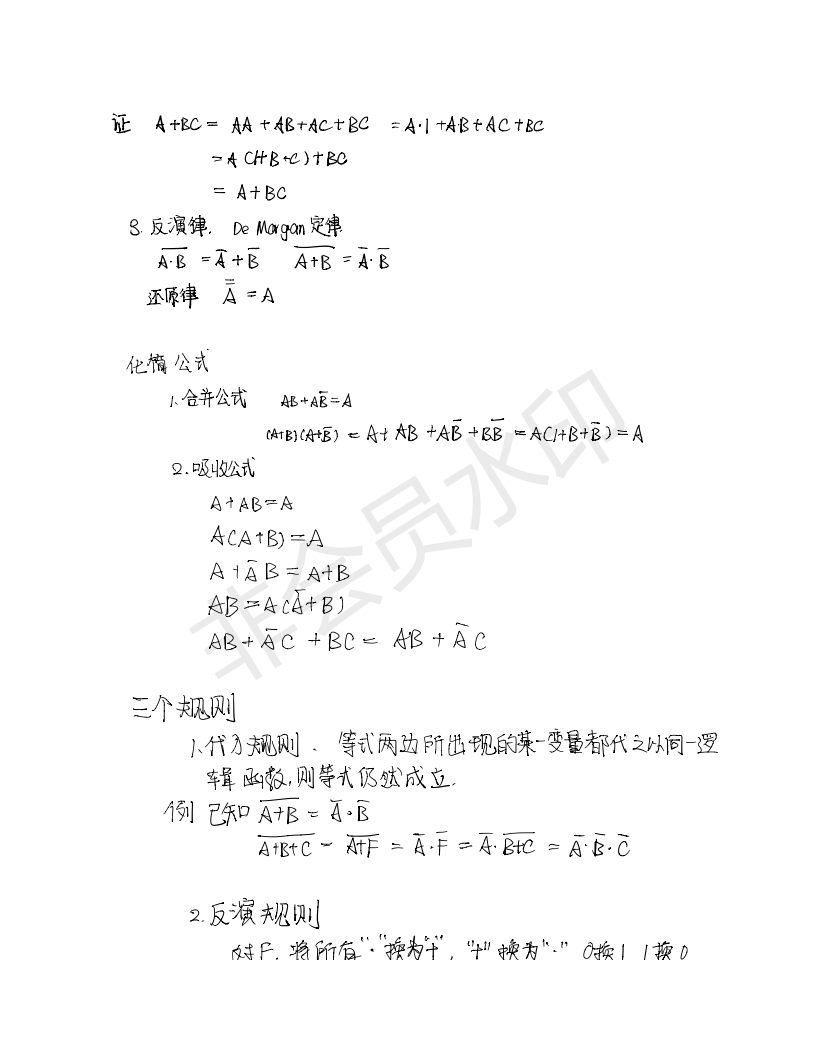 证 A+BC = AA+AB+AC+BC = A·1+AB+AC+BC
= A(1+B+C)+BC
= A+BC
8. 反演律. De Morgan 定律
\overline{A·B} = \overline{A}+\overline{B} \overline{A+B} = \overline{A}·\overline{B}
还原律 \overline{\overline{A}} = A
化簡公式
1. 合并公式 AB+A\overline{B}=A
(A+B)(A+\overline{B}) = A+AB+A\overline{B}+B\overline{B} = A(1+B+\overline{B})=A
2. 吸收公式
A+AB=A
A(A+B)=A
A+\overline{A}B=A+B
AB=A(\overline{A}+B)
AB+\overline{A}C+BC= AB+\overline{A}C
三个规则
1. 代入规则、等式两边所出现的某一变量都代之以同一逻
辑函数,则等式仍然成立.
例 已知 \overline{A+B} = \overline{A}·\overline{B}
\overline{A+B+C} = \overline{A+F} = \overline{A}·\overline{F} = \overline{A}·\overline{B+C} = \overline{A}·\overline{B}·\overline{C}
2. 反演规则
对F. 将所有"·"换为"+", "+"换为"·" 0换1 1换0
非会员水印